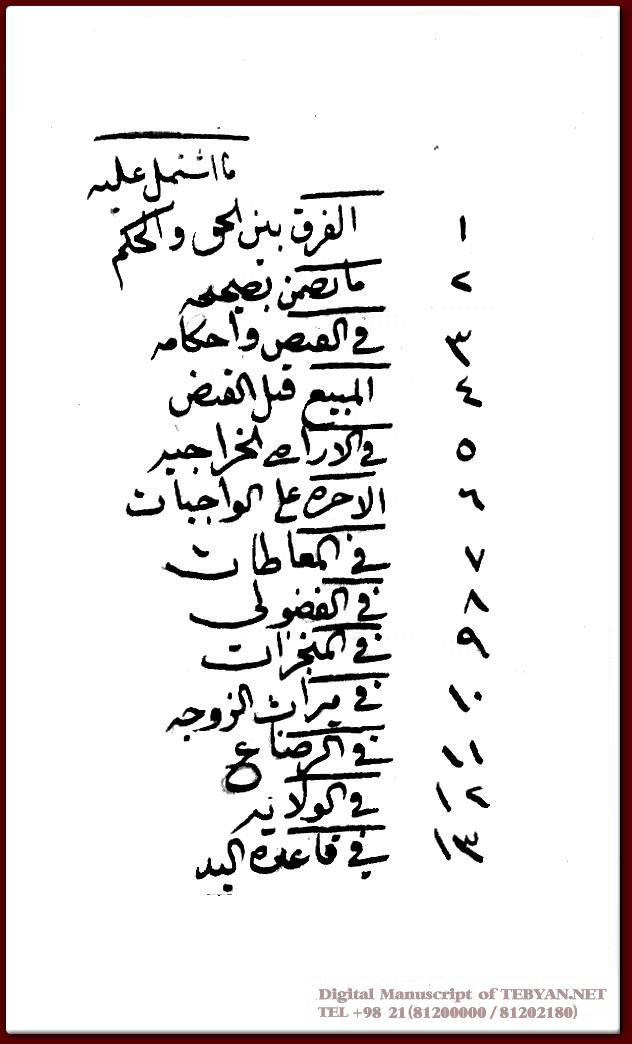 ما اشتمل عليه
١ الفرق بين الحق والحكم
٢ ما يضمن بصحيحه
٣ في القبض واحكامه
٤ المبيع قبل القبض
٥ في الاراضي الخراجيه
٦ الاجره على الواجبات
٧ في المعاطات
٨ في الفضولى
٩ في المنجزات
١٠ في ميراث الزوجه
١١ في الرضاع
١٢ في الولايه
١٣ في قاعده اليد
Digital Manuscript of TEBYAN.NET
TEL +98 21(81200000 / 81202180)